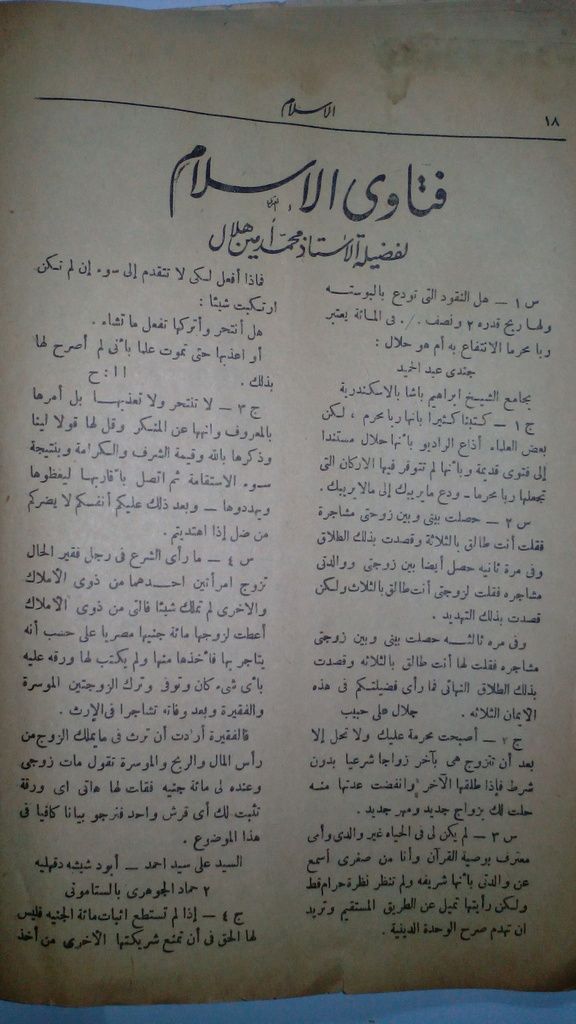 ١٨
الاسلام
فتاوى الإسلام
لفضيلة الأستاذ محمد أمين هلال
س ١ — هل النقود التى تودع بالبوسته
ولها ربح قدره ٢ ونصف ٠/٠ فى المائة يعتبر
ربا محرما الانتفاع به أم هو حلال :
جندى عبد الحميد
بجامع الشيخ ابراهيم باشا بالاسكندرية
ج ١ — كتبنا كثيرا بأنها ربا محرم ، لكن
بعض العلماء أذاع الراديو بأنها حلال مستندا
إلى فتوى قديمة وبأنها لم تتوفر فيها الاركان التى
تجعلها ربا محرما — ودع ما يريبك إلى مالا يريبك .
س ٢ — حصلت بينى وبين زوجتى مشاجرة
فقلت أنت طالق بالثلاثة وقصدت بذلك الطلاق
وفى مرة ثانيه حصل أيضا بين زوجتى ووالدتى
مشاجره فقلت لزوجتى أنت طالق بالثلاث ولكن
قصدت بذلك التهديد .
وفى مره ثالثه حصلت بينى وبين زوجتى
مشاجره فقلت لها أنت طالق بالثلاثه وقصدت
بذلك الطلاق النهائى فما رأى فضيلتكم فى هذه
الايمان الثلاثه . جلال على حبيب
ج ٢ — أصبحت محرمة عليك ولا تحل إلا
بعد أن تتزوج هى بآخر زواجا شرعيا بدون
شرط فإذا طلقها الآخر وانقضت عدتها منه
حلت لك بزواج جديد ومهر جديد .
س ٣ — لم يكن لى فى الحياه غير والدى وأمى
معترف بوصية القرآن وأنا من صغرى أسمع
عن والدتى بأنها شريفه ولم تنظر نظرة حرام قط
ولكن رأيتها تميل عن الطريق المستقيم وتريد
ان تهدم صرح الوحدة الدينية .
فماذا أفعل لكى لا تتقدم إلى سوء إن لم تكن
ارتكبت شيئا :
هل أنتحر وأتركها تفعل ما تشاء .
أو اعذبها حتى تموت علما بأنى لم أصرح لها
بذلك . ١١ : ح
ج ٣ — لا تنتحر ولا تعذبها بل أمرها
بالمعروف وانهها عن المنكر وقل لها قولا لينا
وذكرها بالله وقيمة الشرف والكرامة وبنتيجة
سوء الاستقامة ثم اتصل بأقاربها ليعظوها
ويهددوها — وبعد ذلك عليكم أنفسكم لا يضركم
من ضل إذا اهتديتم .
س ٤ — ما رأى الشرع فى رجل فقير الحال
تزوج امرأتين احدهما من ذوى الأملاك
والاخرى لم تملك شيئا فالتى من ذوى الأملاك
أعطت لزوجها مائة جنيها مصريا على حسب أنه
يتاجر بها فأخذها منها ولم يكتب لها ورقه عليه
بأى شىء كان وتوفى وترك الزوجتين الموسرة
والفقيرة وبعد وفاته تشاجرا فى الإرث .
فالفقيرة أرادت أن ترث فى ما يملك الزوج من
رأس المال والربح والموسرة تقول مات زوجى
وعنده لى مائة جنيه فقالت لها هاتى اى ورقة
تثبت لك أى قرش واحد فنرجو بيانا كافيا فى
هذا الموضوع .
السيد على سيد احمد — أبود شيشه دقهليه
٢ حماد الجوهرى بالستامونى
ج ٤ — إذا لم تستطع اثبات مائة الجنيه فليس
لها الحق فى أن تمنع شريكتها الأخرى من أخذ